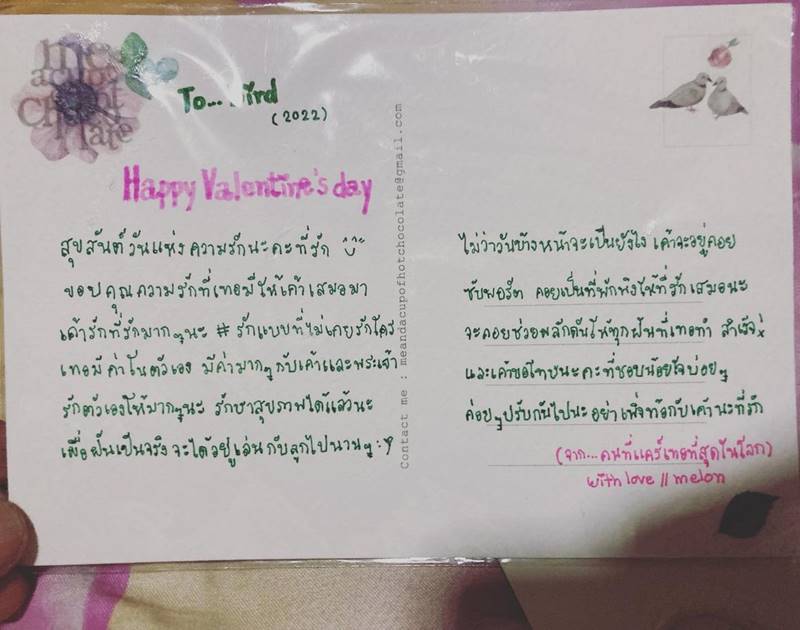 me &
a cup of
hot
Chocolate
To... Bird
(2022)
Happy Valentine's day
สุขสันต์วันแห่งความรักนะคะที่รัก
ขอบคุณความรักที่เทอมีให้เค้าเสมอมา
เค้ารักที่รักมากๆนะ # รักแบบที่ไม่เคยรักใคร
เทอมีค่าในตัวเอง มีค่ามากๆกับเค้าและพระเจ้า
รักตัวเองให้มากๆนะ รักษาสุขภาพได้แล้วนะ
เผื่อฝันเป็นจริง จะได้อยู่เล่นกับลูกไปนานๆ :)
contact me : meandacupofhotchocolate@gmail.com
ไม่ว่าวันข้างหน้าจะเป็นยังไง เค้าจะอยู่คอย
ซับพอร์ต คอยเป็นที่พักพิงให้ที่รักเสมอนะ
จะคอยช่วยผลักดันให้ทุกฝันที่เทอทำ สำเร็จ
และเค้าขอโทษนะคะที่ชอบน้อยใจบ่อยๆ
ค่อยๆปรับกันไปนะ อย่าเพิ่งท้อกับเค้านะที่รัก
(จาก... คนที่แคร์เทอที่สุดในโลก)
with love || melon